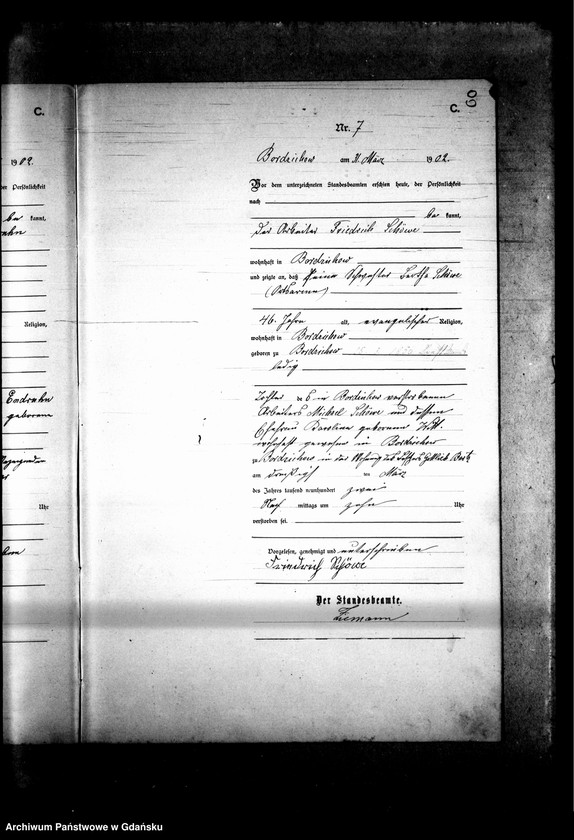 C.
1902.
der Persönlichkeit
kannt,
Religion,
Endruhn
geborene
Uhr
C.
60
Nr. 7
Bordzichow am 31. März 1902.
Vor dem unterzeichneten Standesbeamten erschien heute, der Persönlichkeit
nach
be kannt,
der Arbeiter Friedrich Schöwe
wohnhaft in Bordzichow
und zeigte an, daß seine Schwester Bertha Schöwe
(Ortsarme)
46 Jahre alt, evangelischer Religion,
wohnhaft in Bordzichow
geboren zu Bordzichow
ledig
Tochter des in Bordzichow verstorbenen
Arbeiters Michael Schöwe und dessen
Ehefrau Karolina geborenen
wohnhaft gewesen in Bordzichow
zu Bordzichow in der Wohnung des Gottlieb
am dreißigsten März
des Jahres tausend neunhundert zwei
Nach mittags um zehn Uhr
verstorben sei.
Vorgelesen, genehmigt und unterschrieben
Friedrich Schöwe
Der Standesbeamte.
Ziemann
Archiwum Państwowe w Gdańsku